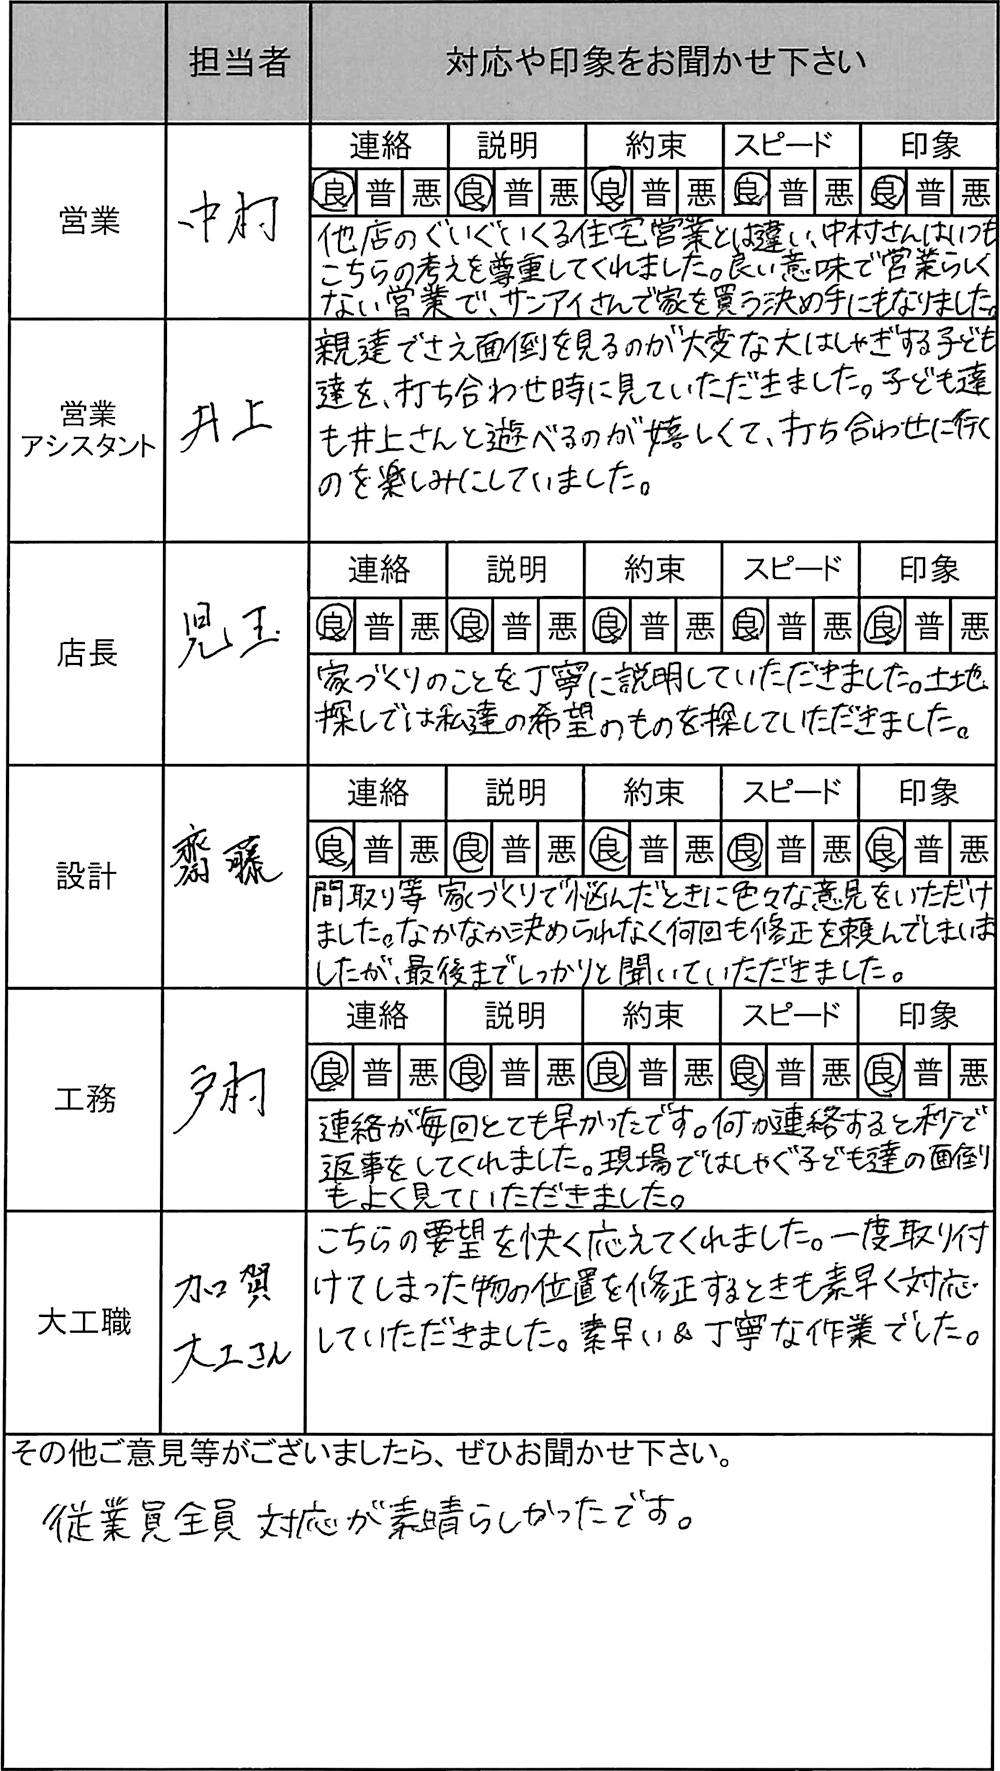 担当者 対応や印象をお聞かせ下さい
営業 中村
連絡 説明 約束 スピード 印象
良 普 悪 良 普 悪 良 普 悪 良 普 悪 良 普 悪
他店のぐいぐいくる住宅営業とは違い、中村さんはいつも
こちらの考えを尊重してくれました。良い意味で営業らしく
ない営業で、サンアイさんで家を買う決め手にもなりました。
営業
アシスタント 井上
親達でさえ面倒を見るのが大変な大はしゃぎする子ども
達を、打ち合わせ時に見ていただきました。子ども達
も井上さんと遊べるのが嬉しくて、打ち合わせに行く
のを楽しみにしていました。
店長 児玉
連絡 説明 約束 スピード 印象
良 普 悪 良 普 悪 良 普 悪 良 普 悪 良 普 悪
家づくりのことを丁寧に説明していただきました。土地
探しでは私達の希望のものを探していただきました。
設計 齋藤
連絡 説明 約束 スピード 印象
良 普 悪 良 普 悪 良 普 悪 良 普 悪 良 普 悪
間取り等 家づくりで悩んだときに色々な意見をいただけ
ました。なかなか決められなく何回も修正を頼んでしまいま
したが、最後までしっかりと聞いていただきました。
工務 戸村
連絡 説明 約束 スピード 印象
良 普 悪 良 普 悪 良 普 悪 良 普 悪 良 普 悪
連絡が毎回とても早かったです。何か連絡すると秒で
返事をしてくれました。現場ではしゃぐ子ども達の面倒
もよく見ていただきました。
大工職 加賀
大工さん
こちらの要望を快く応えてくれました。一度取り付
けてしまった物の位置を修正するときも素早く対応
していただきました。素早い&丁寧な作業でした。
その他ご意見等がございましたら、ぜひお聞かせ下さい。
従業員全員 対応が素晴らしかったです。